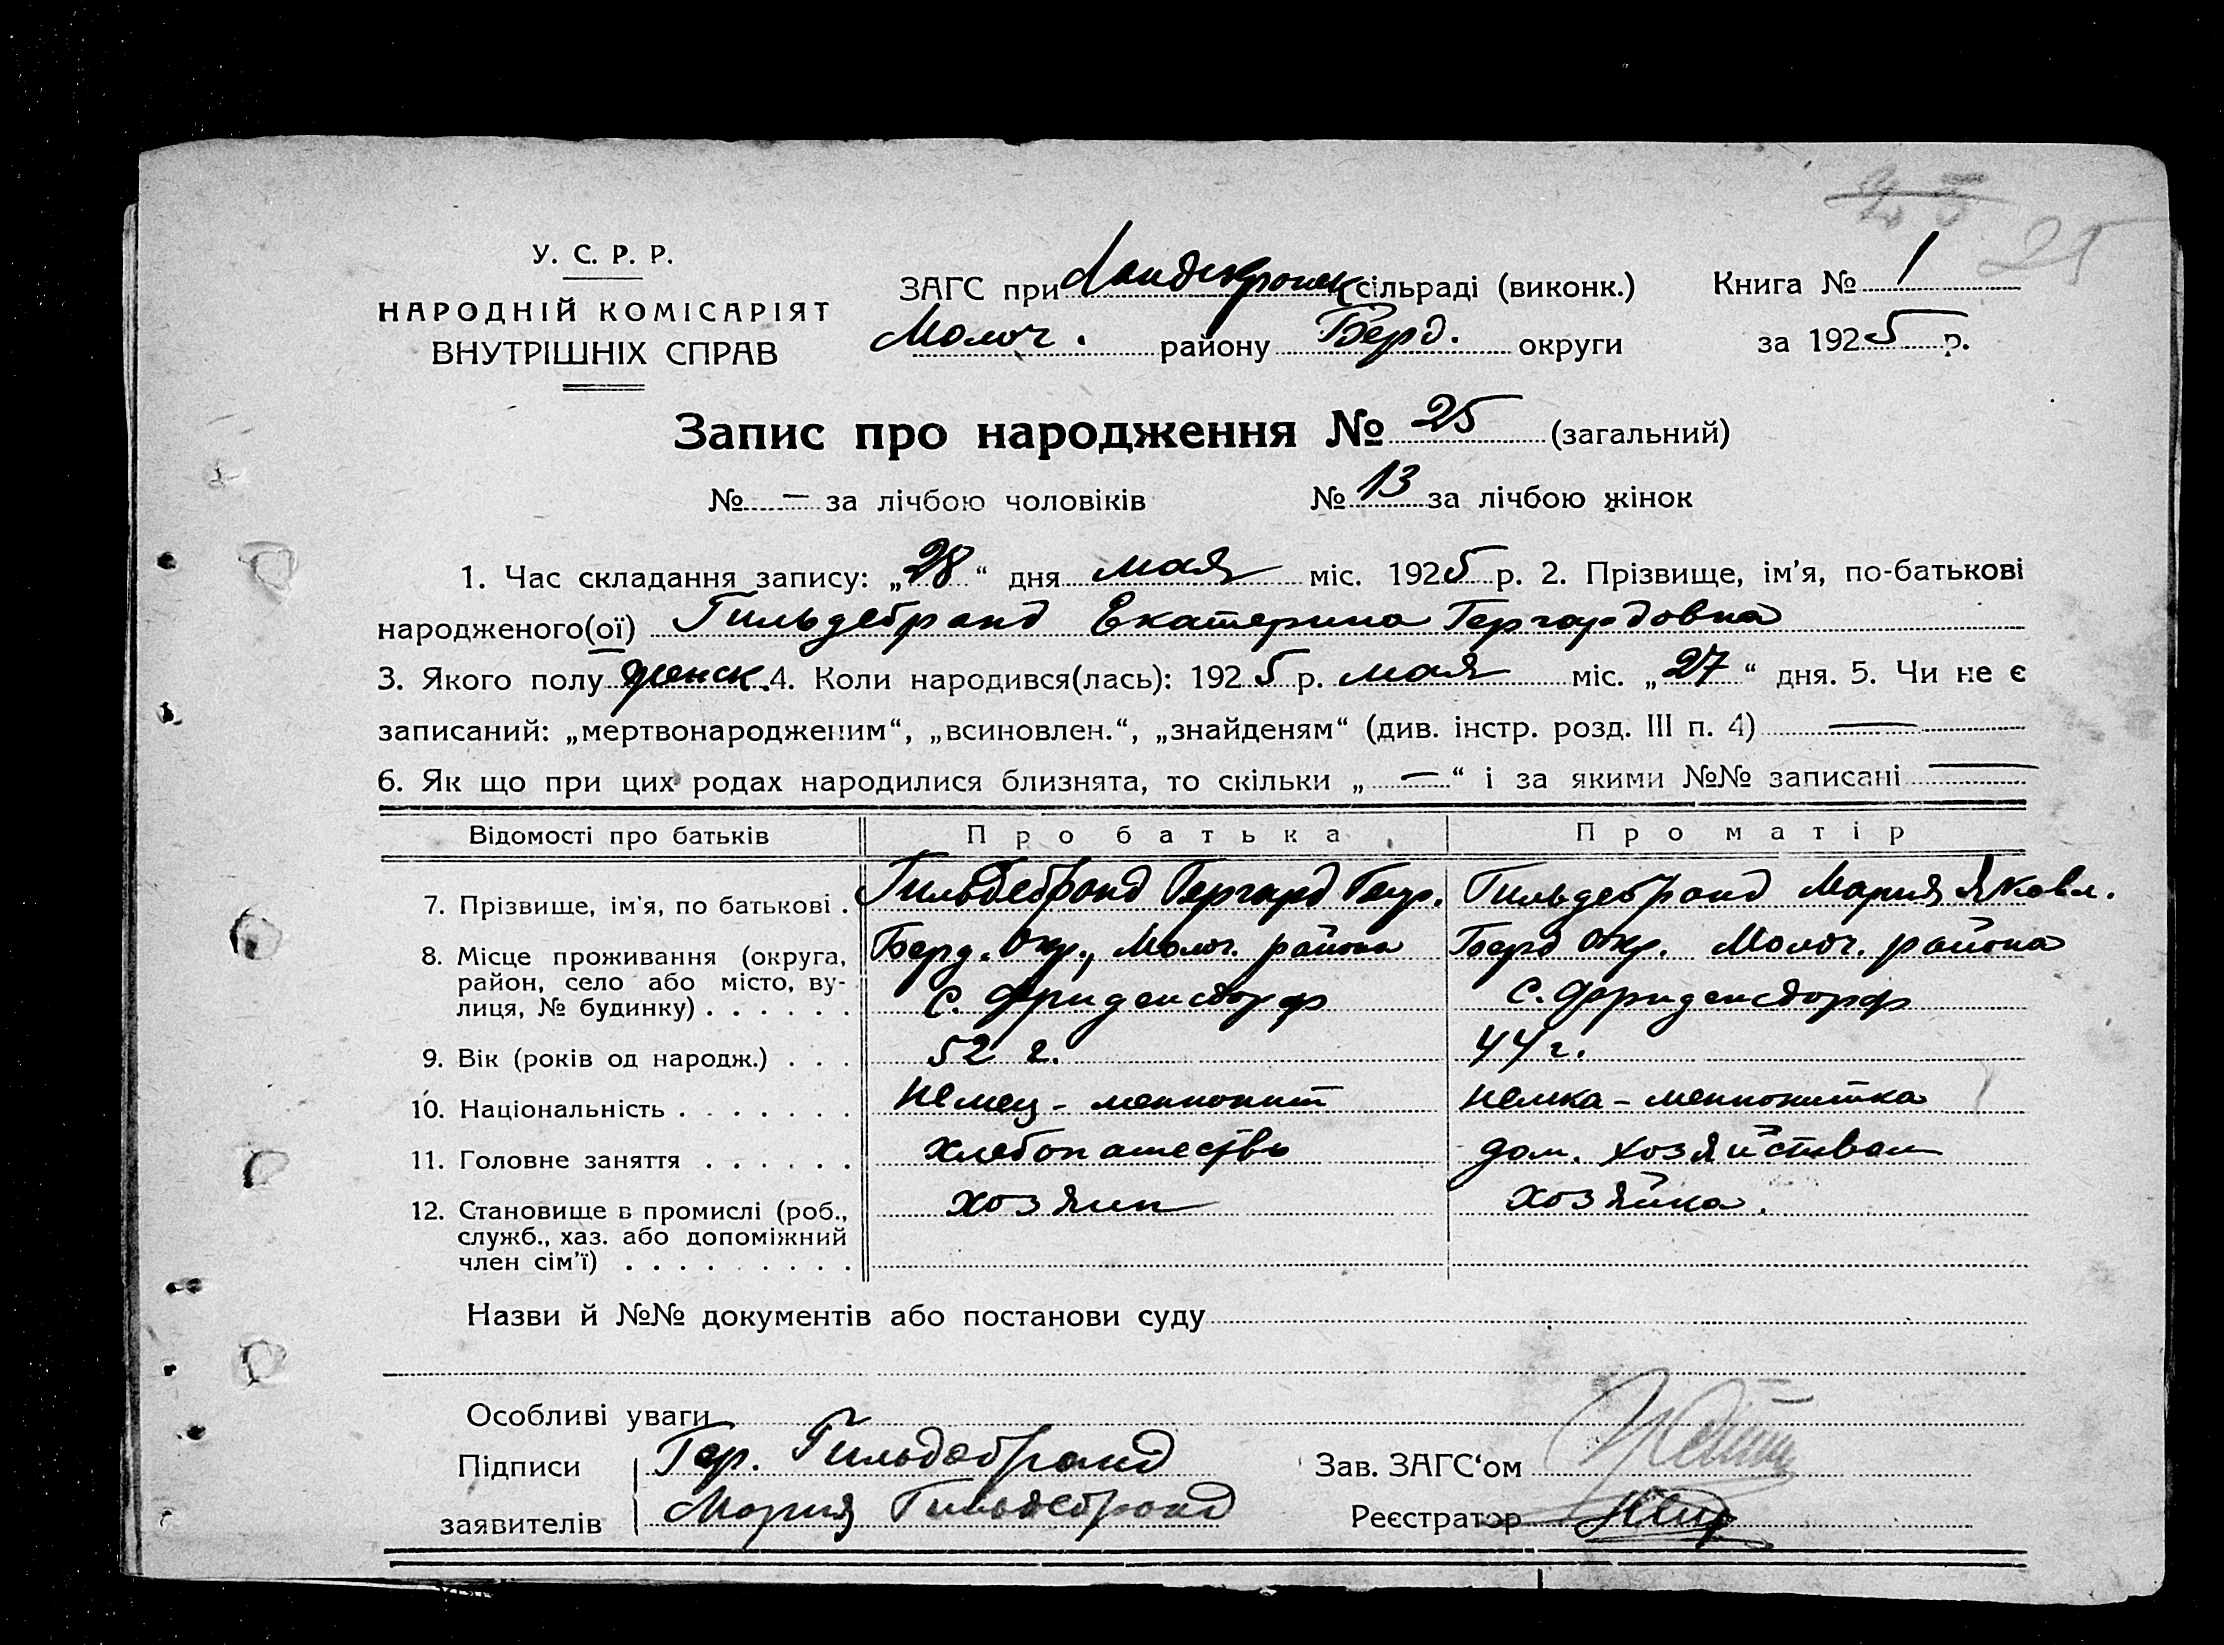 25
25
У. С. Р. Р.
НАРОДНІЙ КОМІСАРІЯТ
ВНУТРІШНІХ СПРАВ
ЗАГС при Ландскронск сільраді (виконк.) Книга № 1
Молоч. району Берд. округи за 1925 р.
Запис про народження № 25 (загальний)
№ — за лічбою чоловіків № 13 за лічбою жінок
1. Час складання запису: „28“ дня мая міс. 1925 р. 2. Прізвище, ім'я, по-батькові
народженого(ої) Гильдебранд Екатерина Гергардовна
3. Якого полу женск. 4. Коли народився(лась): 1925 р. мая міс. „27“ дня. 5. Чи не є
записаний: „мертвонародженим“, „всиновлен.“, „знайденям“ (див. інстр. розд. III п. 4) —
6. Як що при цих родах народилися близнята, то скільки „—“ і за якими №№ записані —
Відомості про батьків Про батька Про матір
7. Прізвище, ім'я, по батькові . Гильдебранд Гергард Генр. Гильдебранд Мария Яковл.
8. Місце проживання (округа, район, село або місто, вулиця, № будинку) . . . . . . Берд. Окр., Молоч. района Берд Окр. Молоч. района
с. Фриденсдорф с. Фриденсдорф
9. Вік (років од народж.) . . . 52 г. 44 г.
10. Національність . . . . . . . немец - меннонит немка - меннонитка
11. Головне заняття . . . . . . хлебопашество дом. хозяйством
12. Становище в промислі (роб., служб., хаз. або допоміжний член сім'ї) . . . . . . . . . хозяин хозяйка.
Назви й №№ документів або постанови суду
Особливі уваги
Підписи Гер. Гильдебранд Зав. ЗАГС‘ом
заявителів Мария Гильдебранд Реєстратор